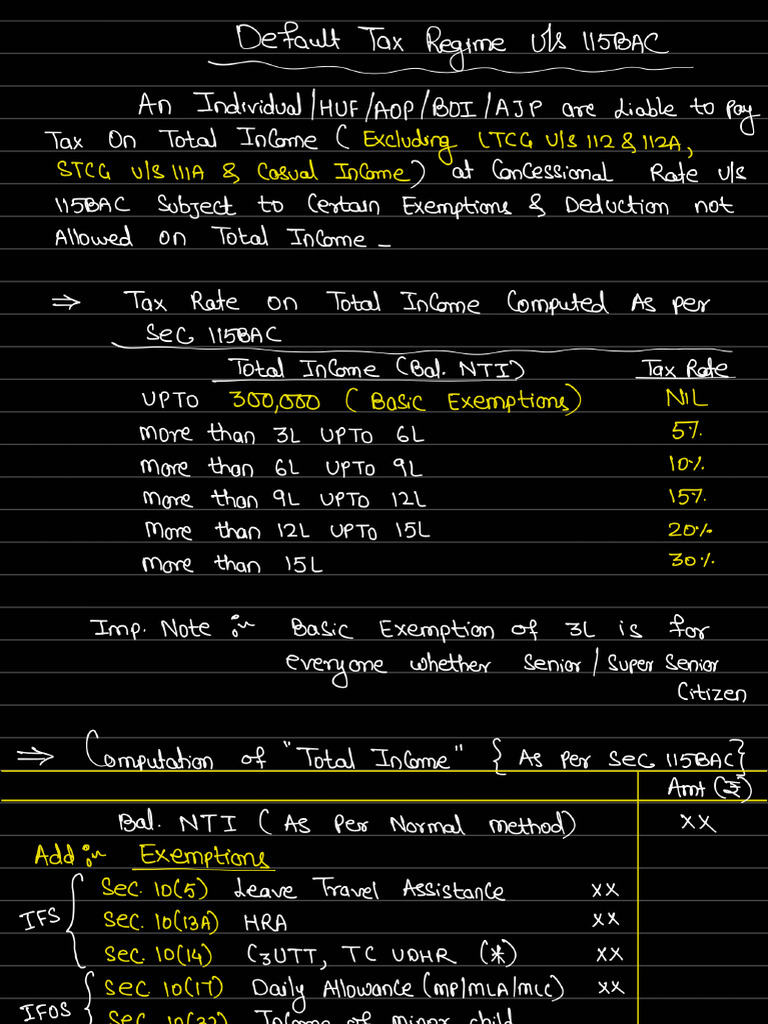 Default Tax Regime u/s 115BAC
An Individual/HUF/AOP/BOI/AJP are liable to pay
Tax On Total Income ( Excluding LTCG u/s 112 & 112A,
STCG u/s 111A & Casual Income) at Concessional Rate u/s
115BAC Subject to Certain Exemptions & Deduction not
Allowed on Total Income -
⇒ Tax Rate on Total Income Computed As per
Sec 115BAC
Total Income (Bal. NTI) Tax Rate
UPTO 300,000 ( Basic Exemptions) NIL
more than 3L UPTO 6L 5%
more than 6L UPTO 9L 10%
more than 9L UPTO 12L 15%
more than 12L UPTO 15L 20%
more than 15L 30%
Imp. Note :~ Basic Exemption of 3L is for
everyone whether Senior / Super Senior
Citizen
⇒ Computation of "Total Income" { As per Sec 115BAC}
Amt (₹)
Bal. NTI ( As Per Normal method) xx
Add :~ Exemptions
Sec. 10(5) Leave Travel Assistance xx
IFS Sec. 10(13A) HRA xx
Sec. 10(14) C3UTT, TC UDHR (*) xx
Sec. 10(17) Daily Allowance (MP/MLA/MLC) xx
IFOS Sec. 10(32) Income of minor child